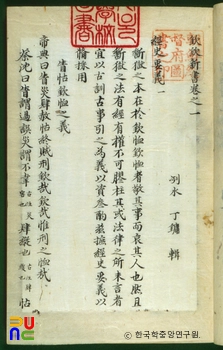 欽欽新書卷之一
洌水 丁鏞 輯
經史要義
斷獄之本在於欽恤欽恤者敬其事而哀其人也然且
斷獄之法有經有權不可膠柱其或法律之所未言者
宜以古訓古事引之爲義以資參酌茲摭經史要義以
備採用
眚怙欽恤之義
帝典曰眚災肆赦怙終賊刑欽哉欽哉惟刑之恤哉
蔡沈曰眚謂過誤災謂不幸 肆縱也 怙
© 한국학중앙연구원